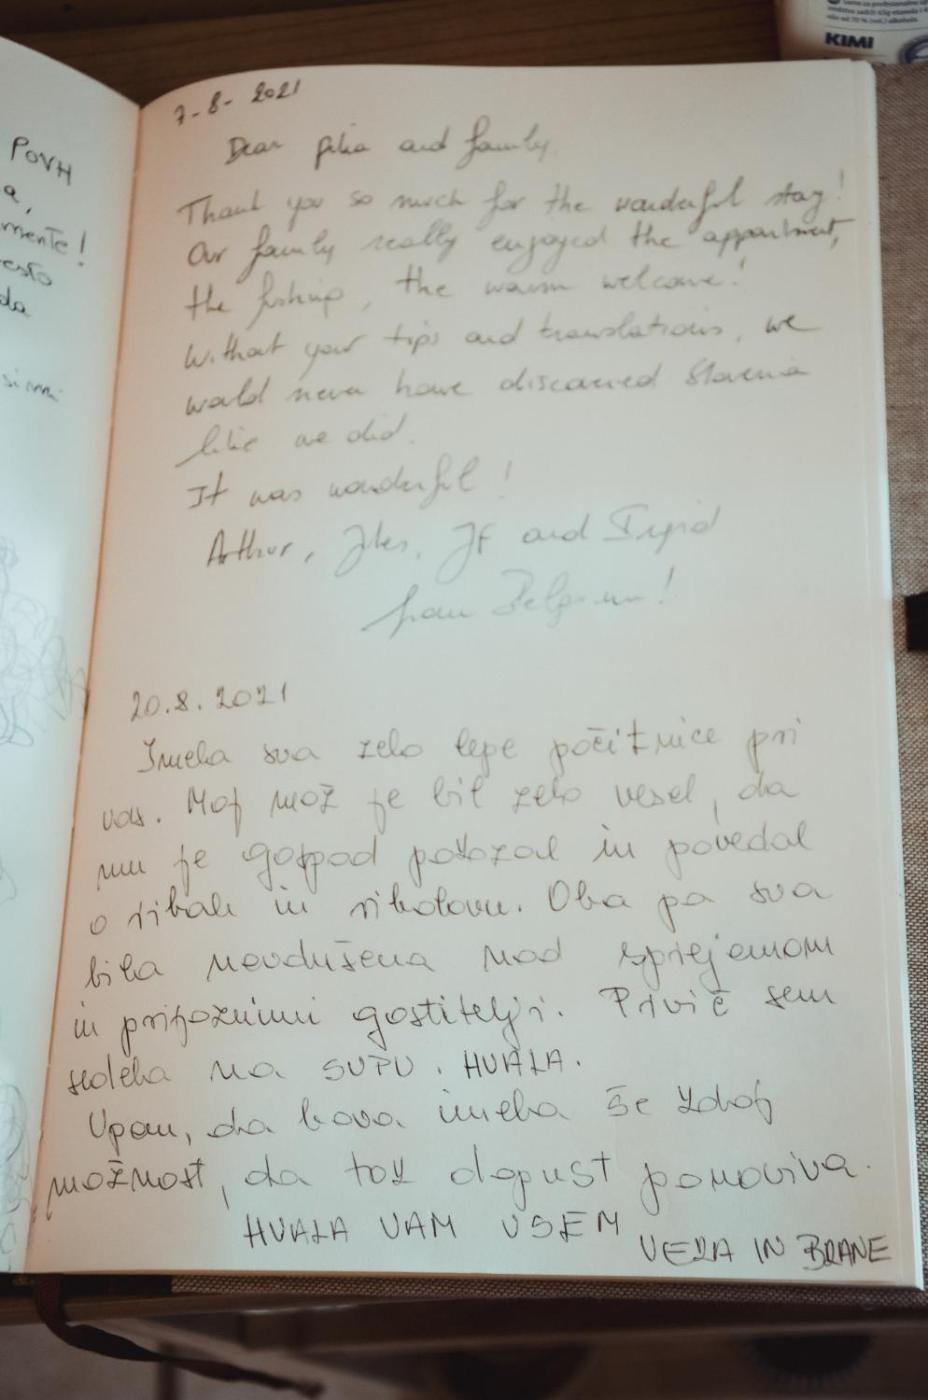 KIMI
POVH
a,
mente!
esto
da
7-8-2021
Dear and family,
Thank you so much for the wonderful stay!
Our family really enjoyed the appartment,
the fishing, the warm welcome!
Without your tips and translations, we
would never have discovered Slovenia
like we did.
It was wonderful!
Arthur, Jules, JF and
from Belgium!
20.8.2021
Imela sva zelo lepe počitnice pri
vas. Moj mož je bil zelo vesel, da
mu je gospod pokazal in povedal
o ribah in ribolovu. Oba pa sva
bila navdušena nad sprejemom
in prijaznimi gostitelji. Prvič sem
sedela na SUPU. HVALA.
Upam, da bova imela še kdaj
možnost, da tak dopust ponoviva.
HVALA VAM VSEM
VERA IN BRANE